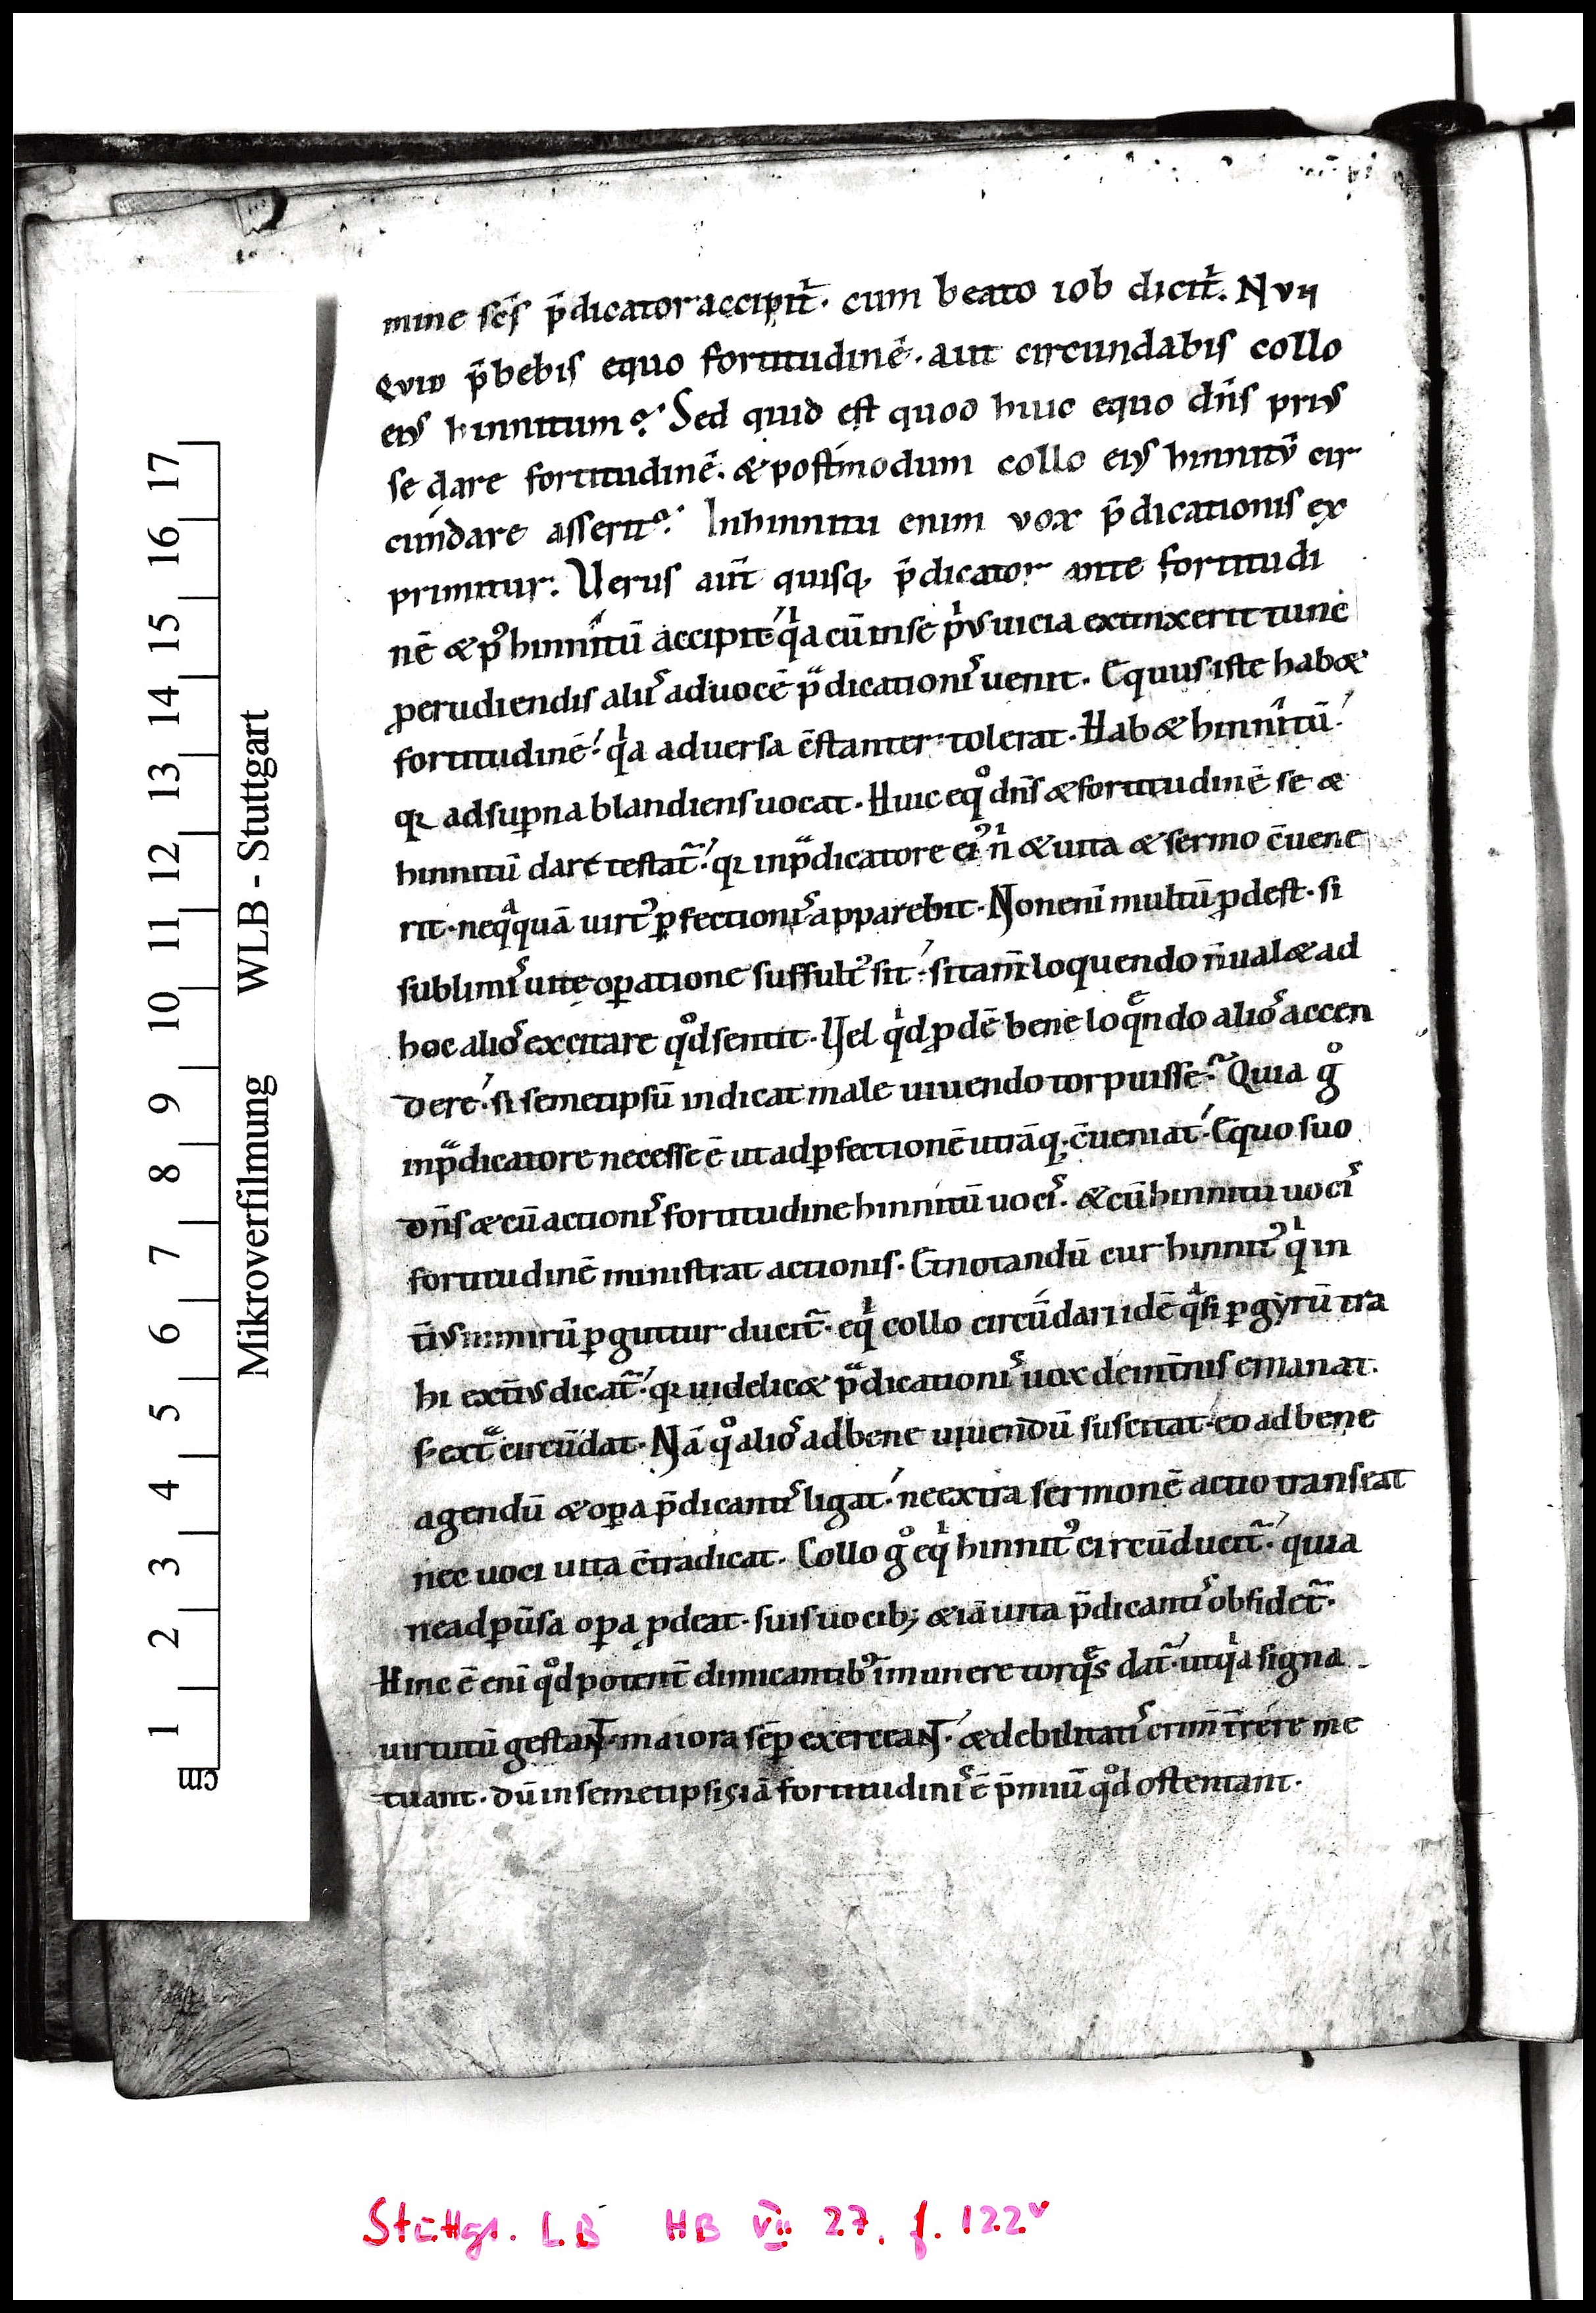 mine scs̄ p̄dicator accipit᷑. cum beato iob dicit᷑. Nvn
qvid p̄bebis equo fortitudinē. aut circundabis collo
eiꝰ hinnitum? Sed quid est quod huic equo dn̄s priꝰ
se dare fortitudinē. & postmodum collo eiꝰ hinnitū cir
cundare asserit? Inhinnitu enim vox p̄dicationis ex
primitur. Uerus aut̄ quisq; p̄dicator ante fortitudi
nē & pꝰ hinnitū accipit qͥa cū inse pͥꝰ uicia extinxerit tunc
ꝓerudiendis aliiˢ aduocē pᵃdicationiˢ uenit. Equus iste hab&
fortitudinē! qͥa aduersa c̄stanter tolerat. Hab& hinnitū!
qꝛ adsuꝑna blandiens uocat. Huic eqͦ dn̄s & fortitudinē se &
hinnitū dare testat᷑! qꝛ inpᵃdicatore eiꝰ nͥ & uita & sermo c̄uene
rit. neqᵃquā uirtꝰ ꝑfectioniˢ apparebit. Non eni multū ꝓdest. si
sublimiˢ uitę oꝑatione suffultꝰ sit. si tam̄ loquendo n̄ ual& ad
hoc alioˢ excitare qͦd sentit. Uel qͥd ꝓdē bene loqᵉndo alioˢ accen
dere. si semetipsū indicat male uiuendo torpuisse? Quia gͦ
inpᵃdicatore necesse ē ut adꝑfectionē utrāq; c̄ueniat. Equo suo
dn̄s & cū actioniˢ fortitudine hinnitū uociˢ. & cū hinnitu uociˢ
fortitudinē ministrat actionis. Et notandū cur hinnitꝰ qͥ in
t̄iꝰ nimirū ꝑ guttur ducit᷑. eqͥ collo circūdari idē qᵃsi ꝑ gyrū tra
hi ext̄iꝰ dicat᷑! qꝛ uidelic& pᵃdicationiˢ uox deint̄nis emanat.
s; extᵃ circūdat. Nā qͦ alioˢ adbene uiuendū suscitat. eo adbene
agendū & oꝑa p̄dicantiˢ ligat. neextra sermonē actio transeat
nec uoci uita c̄tradicat. Collo gͦ eqͥ hinnitꝰ circūducit᷑. quia
neadꝑūsa oꝑa ꝓdeat. suis uocib; & iā uita p̄dicantiˢ obsidet᷑.
Hinc ē eni qͦd potent̄ dimicantibꝰ īmunere torqᵉs dat᷑. ut qͥa signa
uirtutū gestaNT. maiora sēꝑ exerceaNT. & debilitatiˢ crim̄ īrēre me
tuant. dū insemetipsis iā fortitudiniˢ ē p̄miū qͦd ostentant.
17
16
15
14
13
12
11
10
9
8
7
6
5
4
3
2
1
cm
Mikroverfilmung WLB - Stuttgart
Stuttgt. LB HB VII 27. f. 122ᵛ